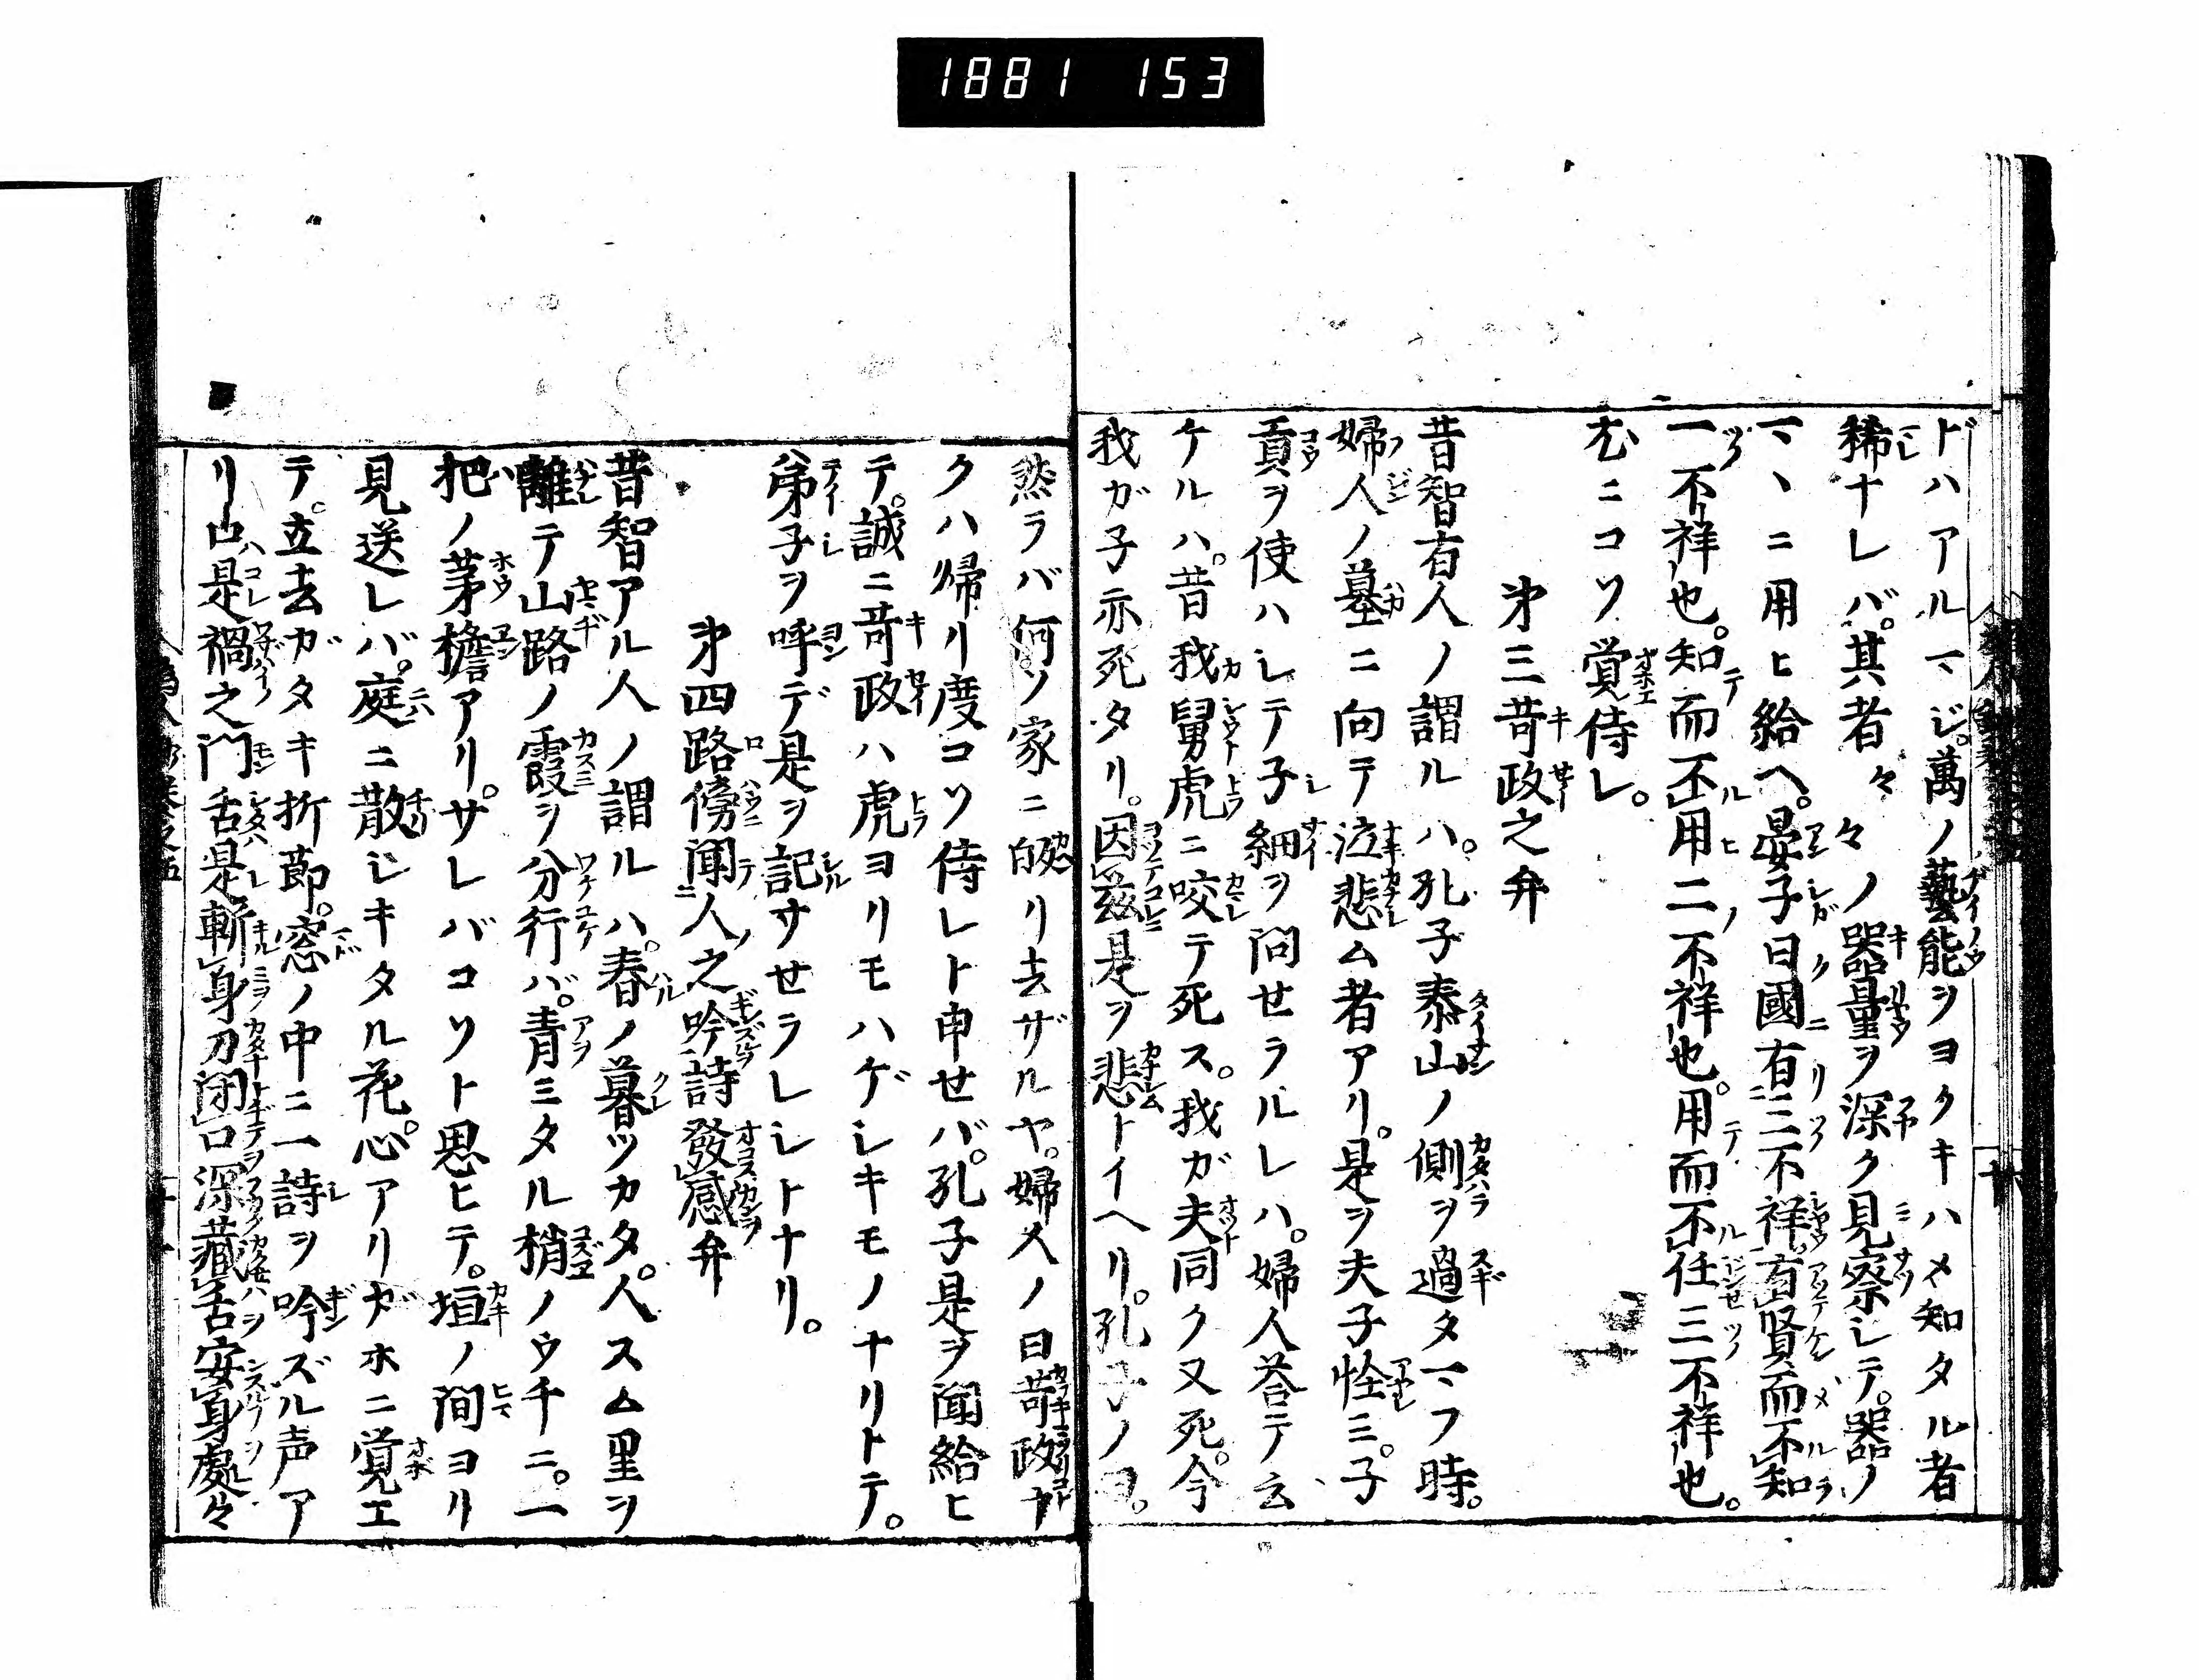 1881 153
ドハアルマジ。萬ノ藝能ヲヨクキハメ知タル者
稀ナレバ。其者々々ノ器量ヲ深ク見察シテ。器ノ
マヽニ用ヒ給ヘ。晏子曰國有三不祥。有賢而不知
一不祥也。知而不用二不祥也。用而不任三不祥也。
尤ニコソ覚侍レ。
第三苛政之弁
昔智有人ノ謂ルハ。孔子泰山ノ側ヲ過タマフ時。
婦人ノ墓ニ向テ泣悲ム者アリ。是ヲ夫子怪ミ。子
貢ヲ使ハシテ子細ヲ問せラルレハ。婦人荅テ云
ケルハ。昔我舅虎ニ咬テ死ス。我ガ夫同ク又死。今
我ガ子亦死タリ。因茲是ヲ悲トイヘリ。孔子ノ曰。
然ラバ何ソ家ニ皈リ去ザルヤ。婦人ノ曰苛政ナ
クハ帰リ度コソ侍レト申せバ。孔子是ヲ聞給ヒ
テ。誠ニ苛政ハ虎ヨリモハゲシキモノナリトテ。
弟子ヲ呼デ是ヲ記サせラレシトナリ。
第四路傍聞人之吟詩發感弁
昔智アル人ノ謂ルハ。春ノ暮ツカタ。人スム里ヲ
離テ山路ノ霞ヲ分行バ。青ミタル梢ノウチニ。一
把ノ茅檐アリ。サレバコソト思ヒテ。垣ノ間ヨリ
見送レバ。庭ニ散シキタル花。心アリガホニ覚エ
テ。立去ガタキ折節。窓ノ中ニ一詩ヲ吟ズル声ア
リ口是禍之門舌是斬身刀閉口深藏舌安身處々